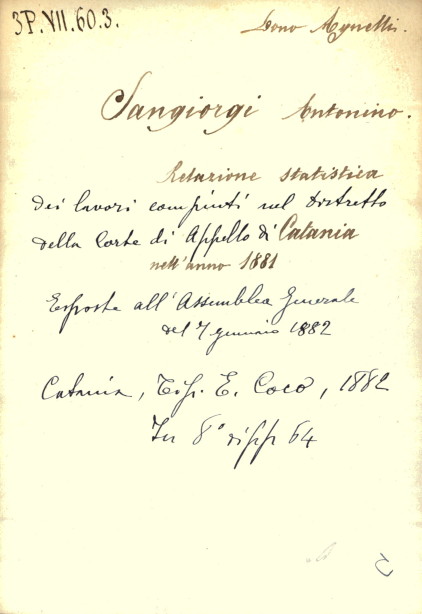 3P.VII.60.3.
Dono Agnelli.
Sangiorgi Antonino.
Relazione statistica
dei lavori compiuti nel Distretto
della Corte di Appello di Catania
nell'anno 1881
Esposta all'Assemblea Generale
del 7 gennaio 1882
Catania, Tip. E. Coco, 1882
In 8°
64